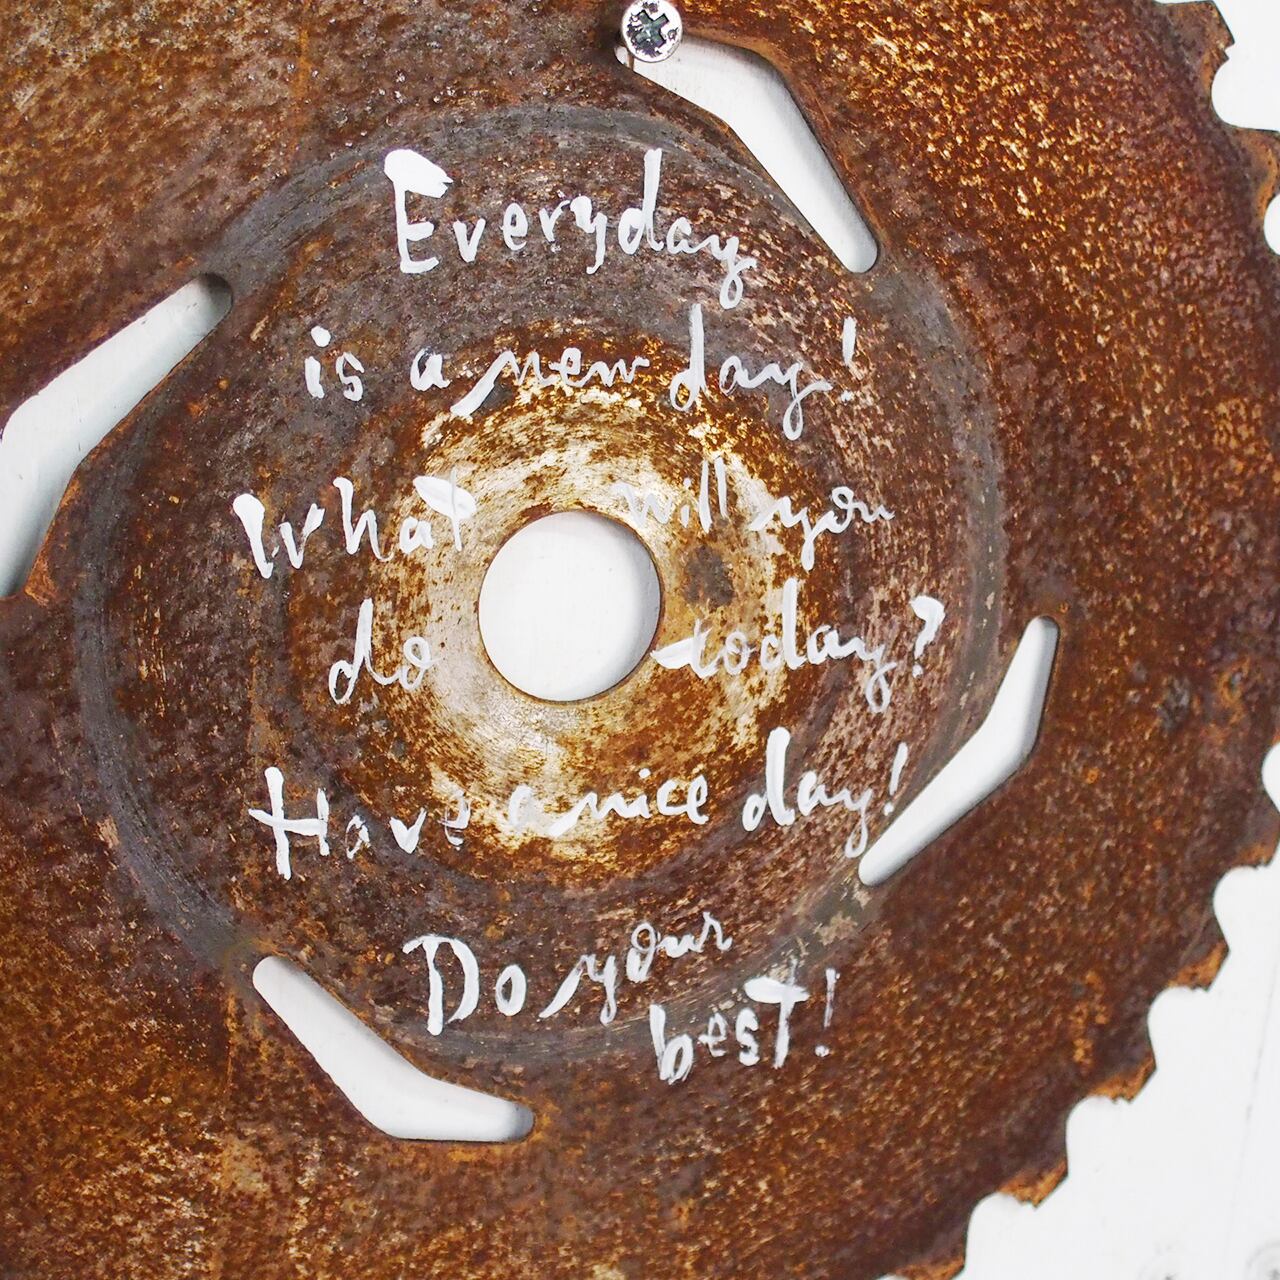 Everyday
is a new day!
What will you
do today?
Have a nice day!
Do your
best!